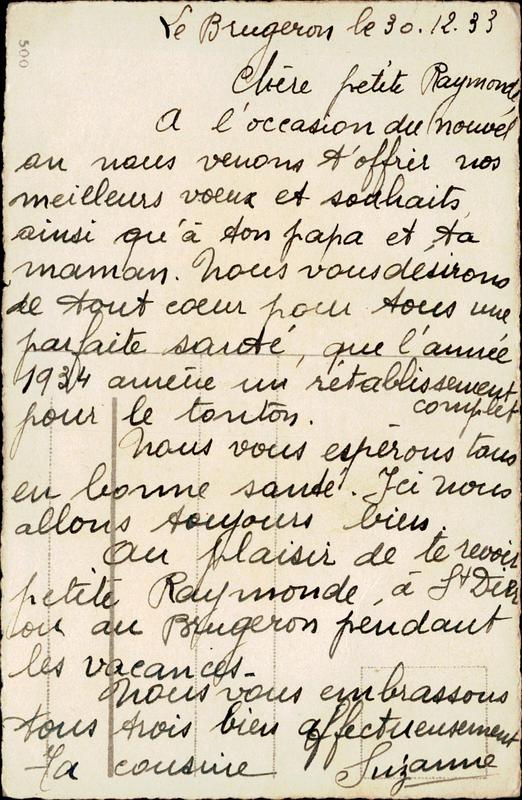 500
Le Brugeron le 30.12.33
Chère petite Raymonde,
A l'occasion du nouvel
an nous venons t'offrir nos
meilleurs vœux et souhaits
ainsi qu'à ton papa et ta
maman. Nous vous désirons
de tout cœur pour tous une
parfaite santé, que l'année
1934 amène un rétablissement
complet
pour le tonton.
Nous vous espérons tous
en bonne santé. Ici nous
allons toujours bien.
Au plaisir de te revoir
petite Raymonde, à St Dier
ou au Brugeron pendant
les vacances.
Nous vous embrassons
tous trois bien affectueusement
Ta cousine Suzanne